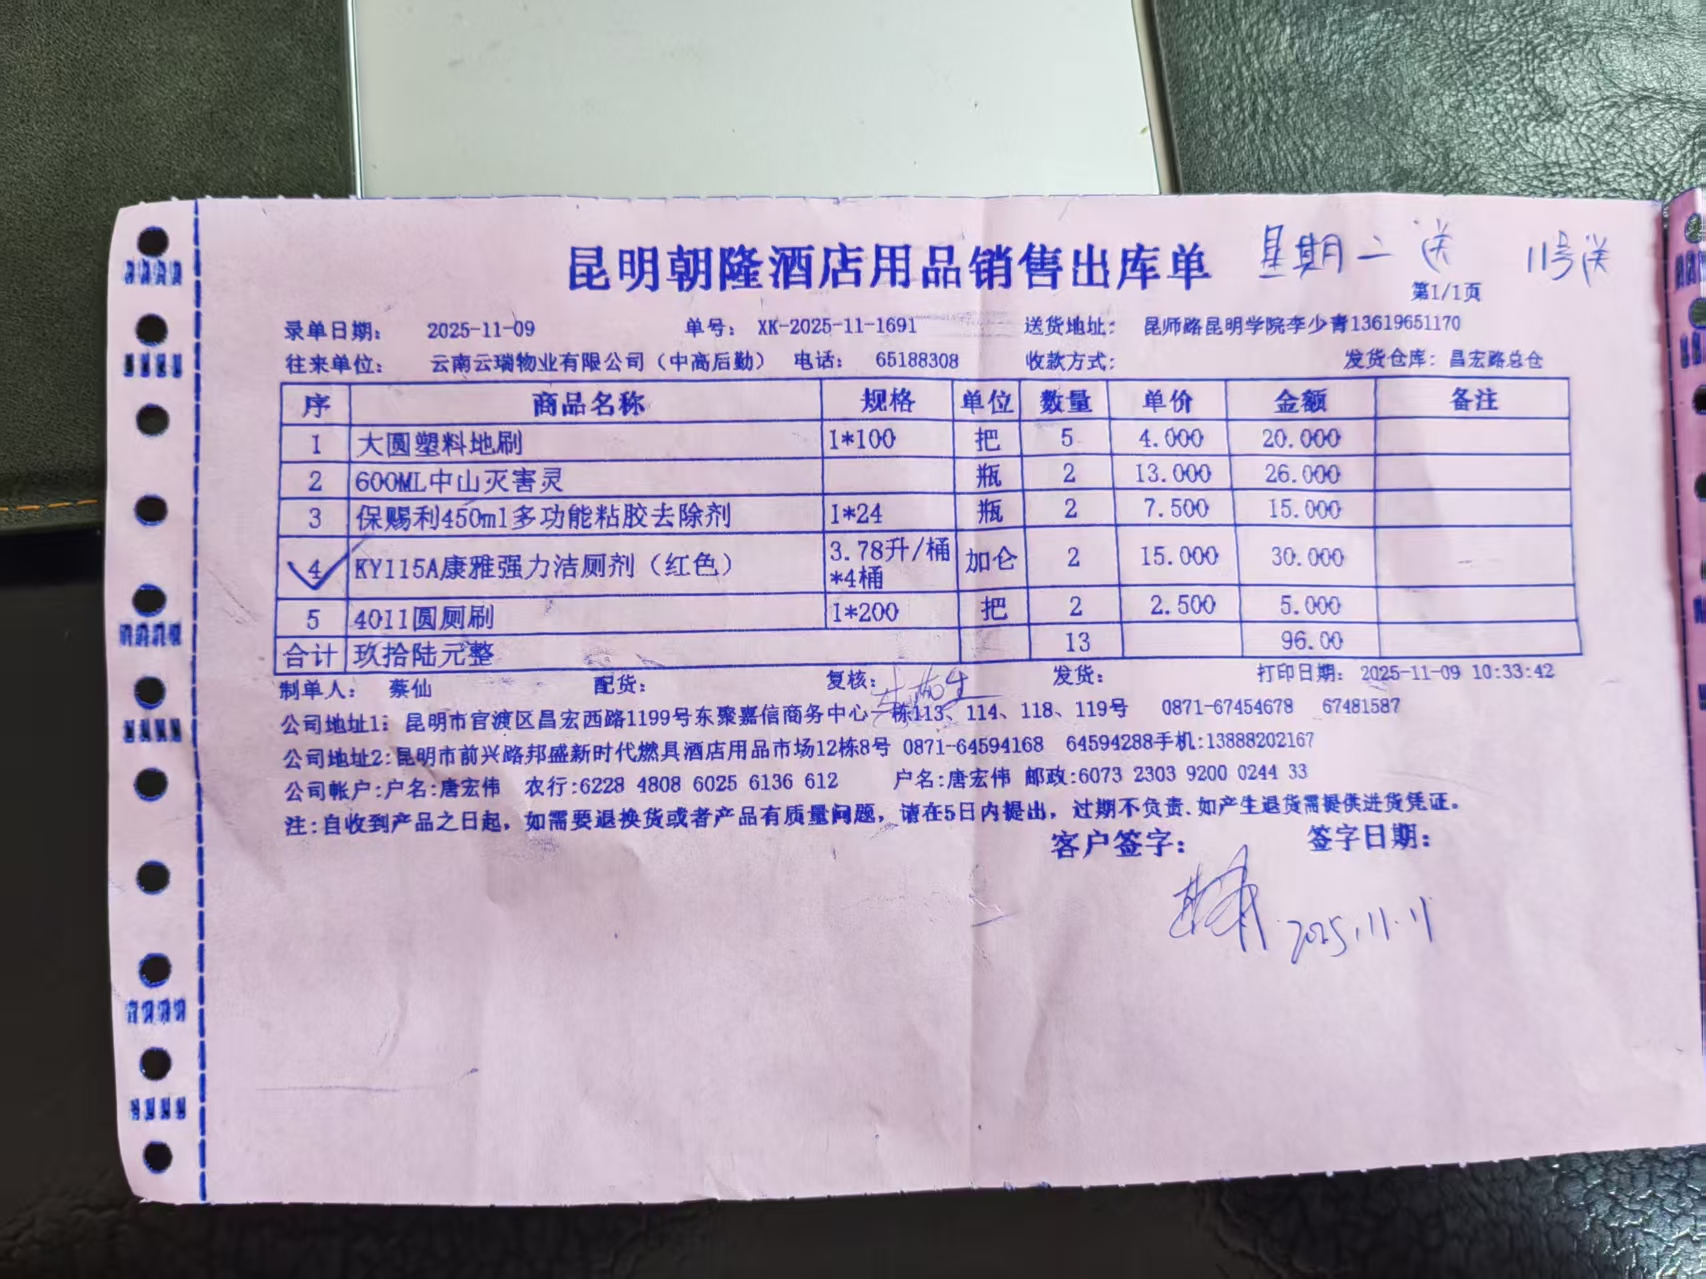 昆明朝隆酒店用品销售出库单 星期二送 11号送
第1/1页
录单日期: 2025-11-09 单号: XK-2025-11-1691 送货地址: 昆师路昆明学院李少青13619651170
往来单位: 云南云瑞物业有限公司（中高后勤） 电话: 65188308 收款方式: 发货仓库: 昌宏路总仓
序 商品名称 规格 单位 数量 单价 金额 备注
1 大圆塑料地刷 1*100 把 5 4.000 20.000
2 600ML中山灭害灵 瓶 2 13.000 26.000
3 保赐利450ml多功能粘胶去除剂 1*24 瓶 2 7.500 15.000
4 KY115A康雅强力洁厕剂（红色） 3.78升/桶*4桶 加仑 2 15.000 30.000
5 4011圆厕刷 1*200 把 2 2.500 5.000
合计 玖拾陆元整 13 96.00
制单人: 蔡仙 配货: 复核: 发货: 打印日期: 2025-11-09 10:33:42
公司地址1: 昆明市官渡区昌宏西路1199号东聚嘉信商务中心一栋113、114、118、119号 0871-67454678 67481587
公司地址2:昆明市前兴路邦盛新时代燃具酒店用品市场12栋8号 0871-64594168 64594288手机:13888202167
公司帐户:户名:唐宏伟 农行:6228 4808 6025 6136 612 户名:唐宏伟 邮政:6073 2303 9200 0244 33
注:自收到产品之日起，如需要退换货或者产品有质量问题，请在5日内提出，过期不负责.如产生退货需提供进货凭证。
客户签字: 签字日期:
2025.11.11